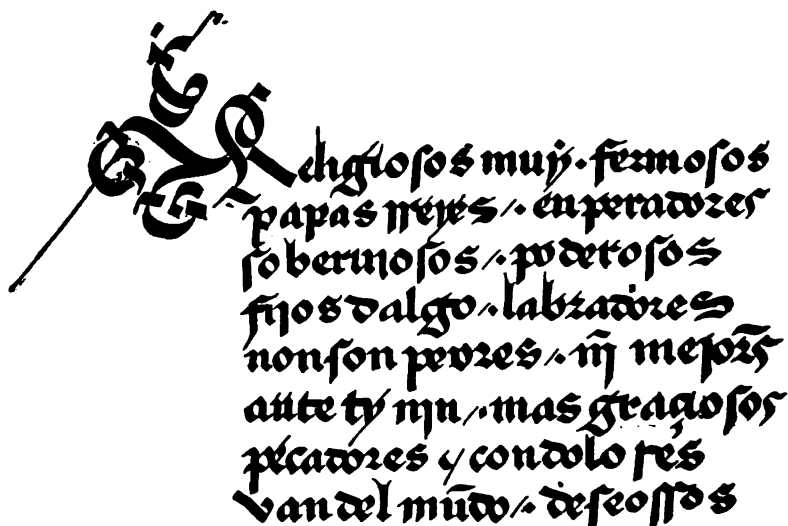 Religiosos muy . fermosos
papas rreyes /. enperadores
soberuiosos /. poderosos
fijos dalgo /. labradores
non son peores /. nĩ mejores
ante ty nĩn /. mas graçiosos
pecadores y con dolores
van del mũdo /. deseossos